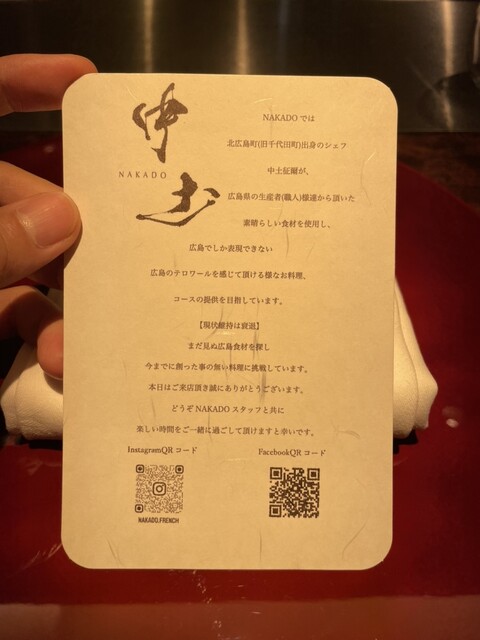 中土
NAKADO
NAKADOでは
北広島町(旧千代田町)出身のシェフ
中土征爾が、
広島県の生産者(職人)様達から頂いた
素晴らしい食材を使用し、
広島でしか表現できない
広島のテロワールを感じて頂ける様なお料理、
コースの提供を目指しています。
【現状維持は衰退】
まだ見ぬ広島食材を探し
今までに創った事の無い料理に挑戦しています。
本日はご来店頂き誠にありがとうございます。
どうぞNAKADOスタッフと共に
楽しい時間をご一緒に過ごして頂けますと幸いです。
InstagramQRコード
FacebookQRコード
NAKADO.FRENCH